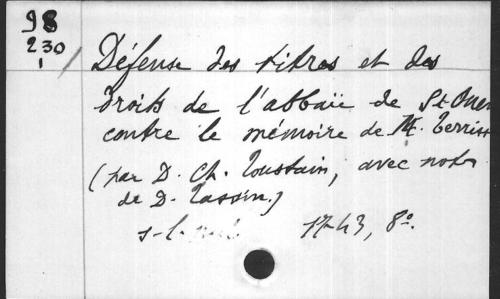 98
230
1
Défense des titres et des
droits de l'abbaïe de St Ouen
contre le mémoire de M. Terriss
(par D. Ch. Toustain, avec notes
de D. Tassin.)
s-l. 1743, 8°.